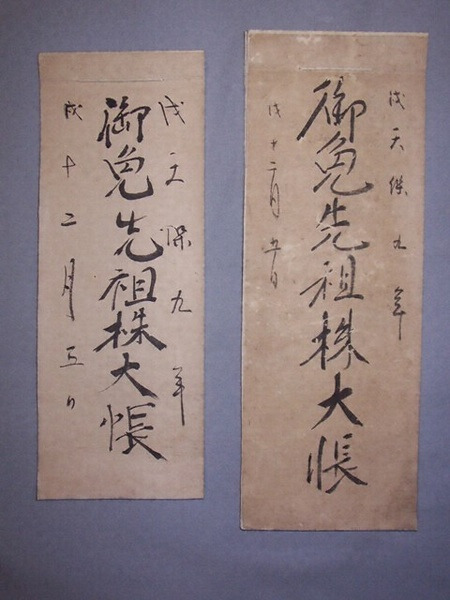 戊天保九年
御免先祖株大帳
戊十二月五日
戌天保九年
御免先祖株大帳
戌十二月五日